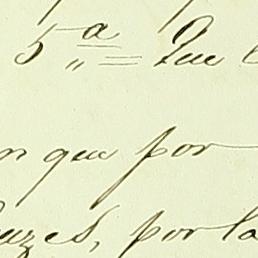 5ª = Que
n que por
uzes, por la